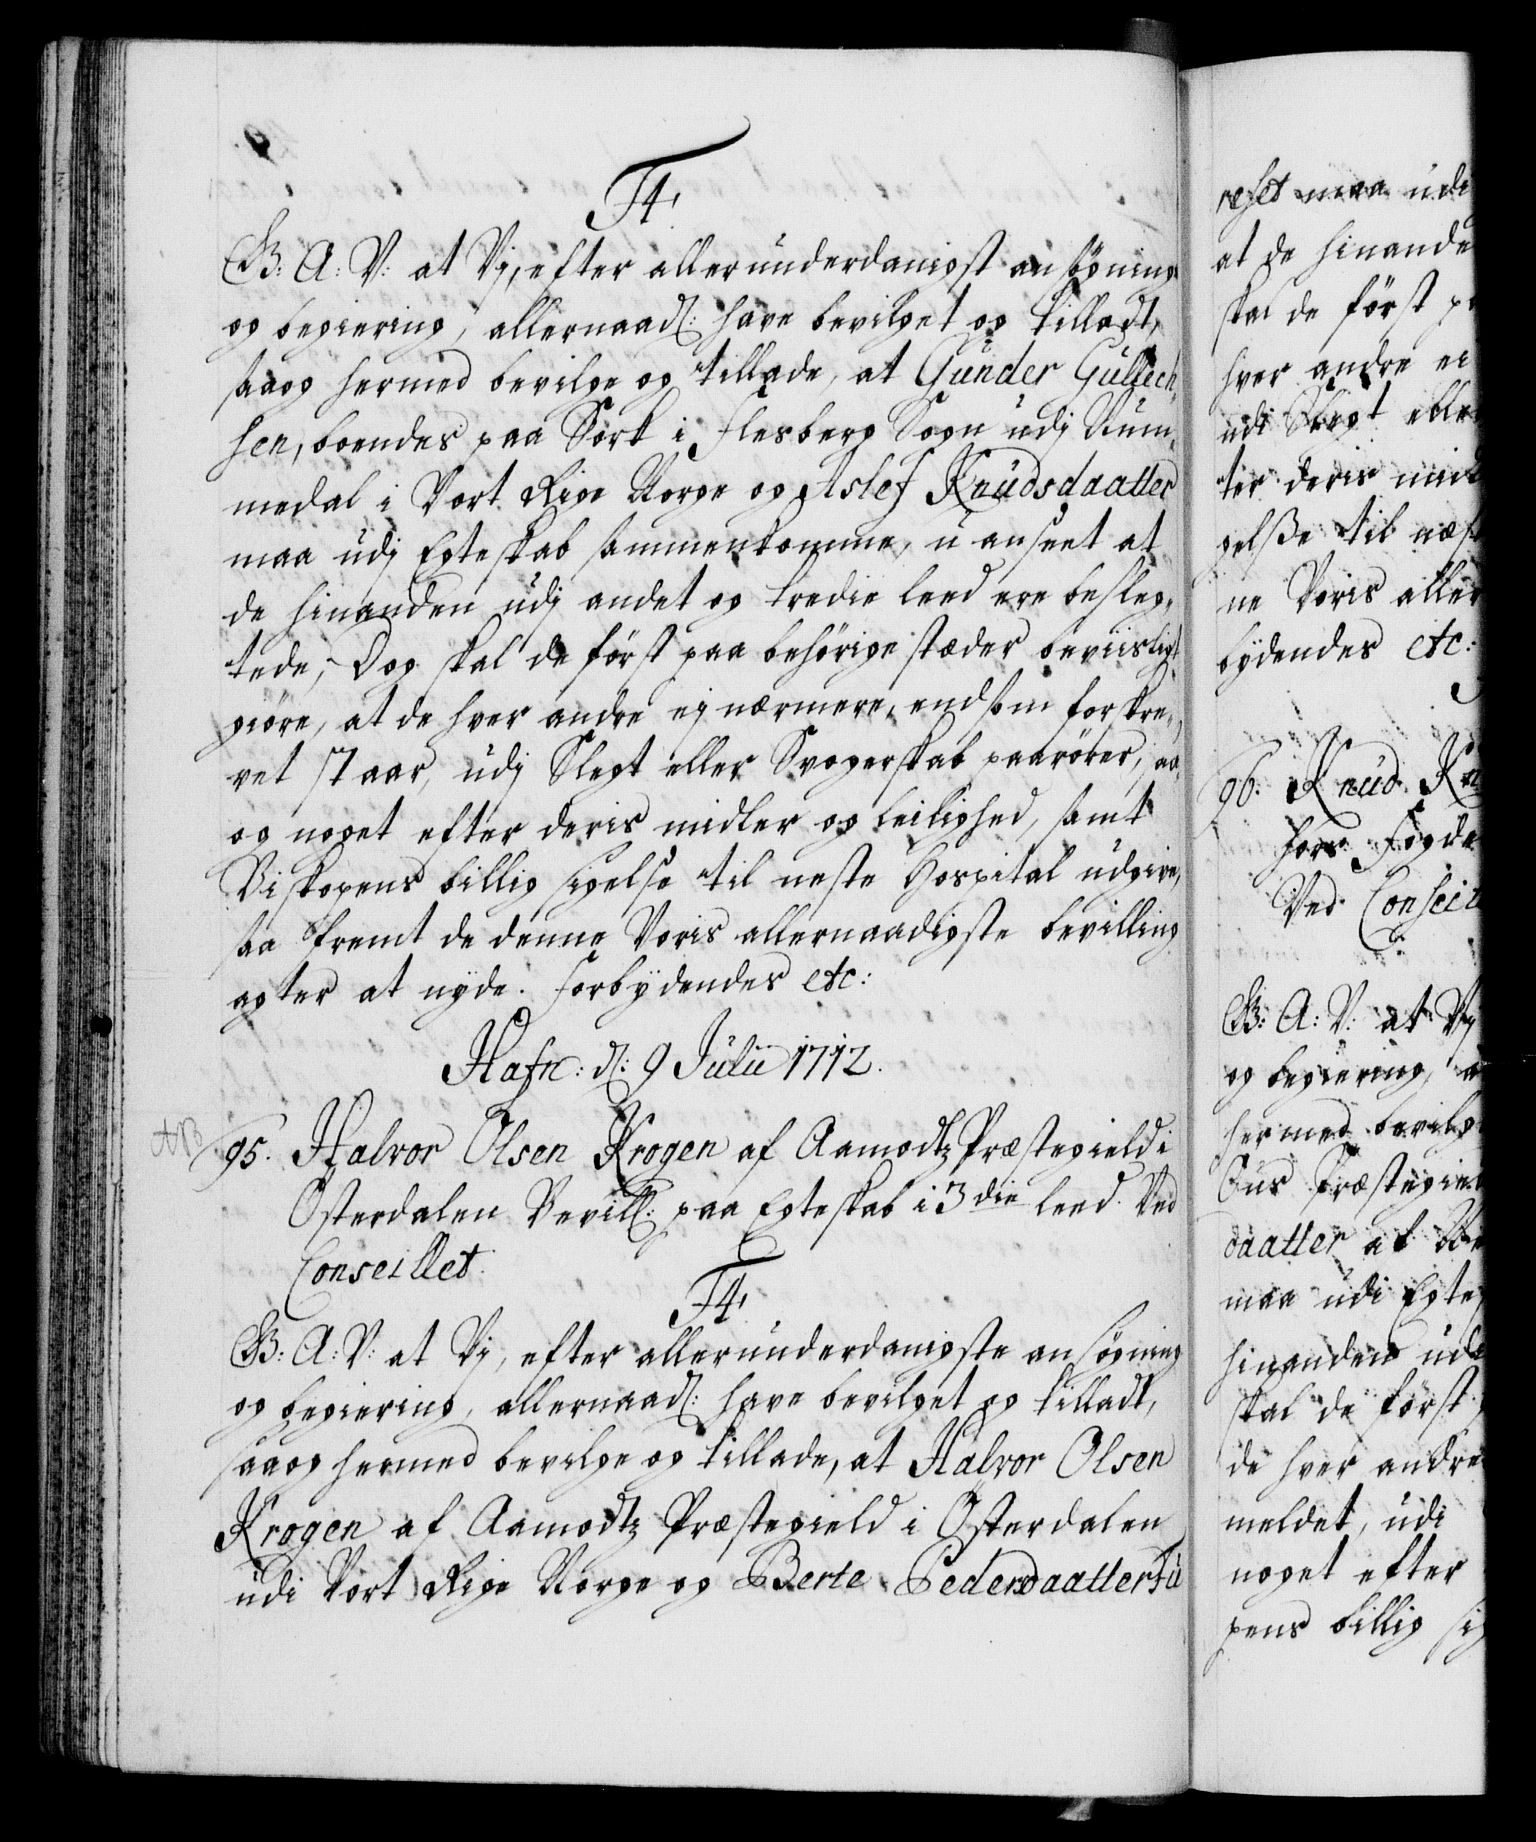 F4.
G: A: V: at Vj, efter allerunderdanigst ansögning
og begiering, allernaad: have bevilget og tilladt,
saa og hermed bevilge og tillade, at Gunder Gullich,
sen, boendes paa Sört i Flesberg Sogn udj Num,
medal i Vort Rige Norge og Aslef Knudsdaatter
maa udj Egteskab sammenkomme, uanseet at
de hinanden udj andet og tredie leed ere besleg,
tede, Dog skal de först paa behörige stæder beviislig
giöre, at de hver andre ej nærmere, end som forskre,
vet staar, udj Slegt eller Svogerskab paarörer, saa
og noget efter deris midler og leilighed, samt
Biskopens billig sigelse til neste Hospital udgive,
saa fremt de denne Voris allernaadigste bevilling
agter at nyde. Forbydendes etc:
Hafn: d: 9 Julii 1712.
NB
95. Halvor Olsen Krogen af Aamodtz Præstegield i
Osterdalen Bevill: paa Egteskab i 3die leed. Ved
Conseillet.
F4.
G: A: V: at Vj, efter allerunderdanigste ansögning
og begiering, allernaad: have bevilget og tilladt,
saa og hermed bevilge og tillade, at Halvor Olsen
Krogen af Aamodtz Præstegield i Osterdalen
udi Vort Rige Norge og Berte Pedersdaatter
maa udi
at de hinande
skal de först
hver andre ei
udi Slegt elle
ter deris mid
gelsse til næst
ne Voris aller
bydendes etc:
96. Knud
Fogde
Ved Conseil
G: A: V: at Vj
og begiering, a
hermed bevilg
Præstegiel
daatter af
maa udi Egtes
hinanden ud
skal de först
de hver andre
meldet, udi
noget efter
pens billig si